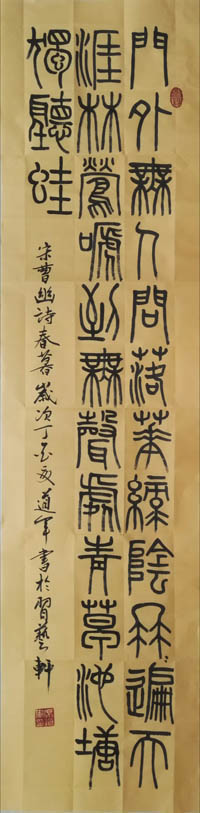 門外無人問落華綠陰冉〻遍天
涯林鶯嗁到無聲處青草池塘
獨聽蛙
宋曹豳詩春暮歲次丁酉夏道軍書於習藝軒